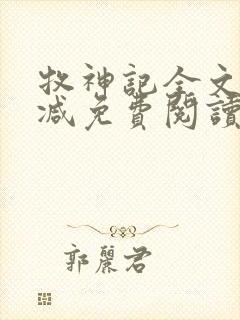 牧神記全文
減免費閱讀
郭麗君